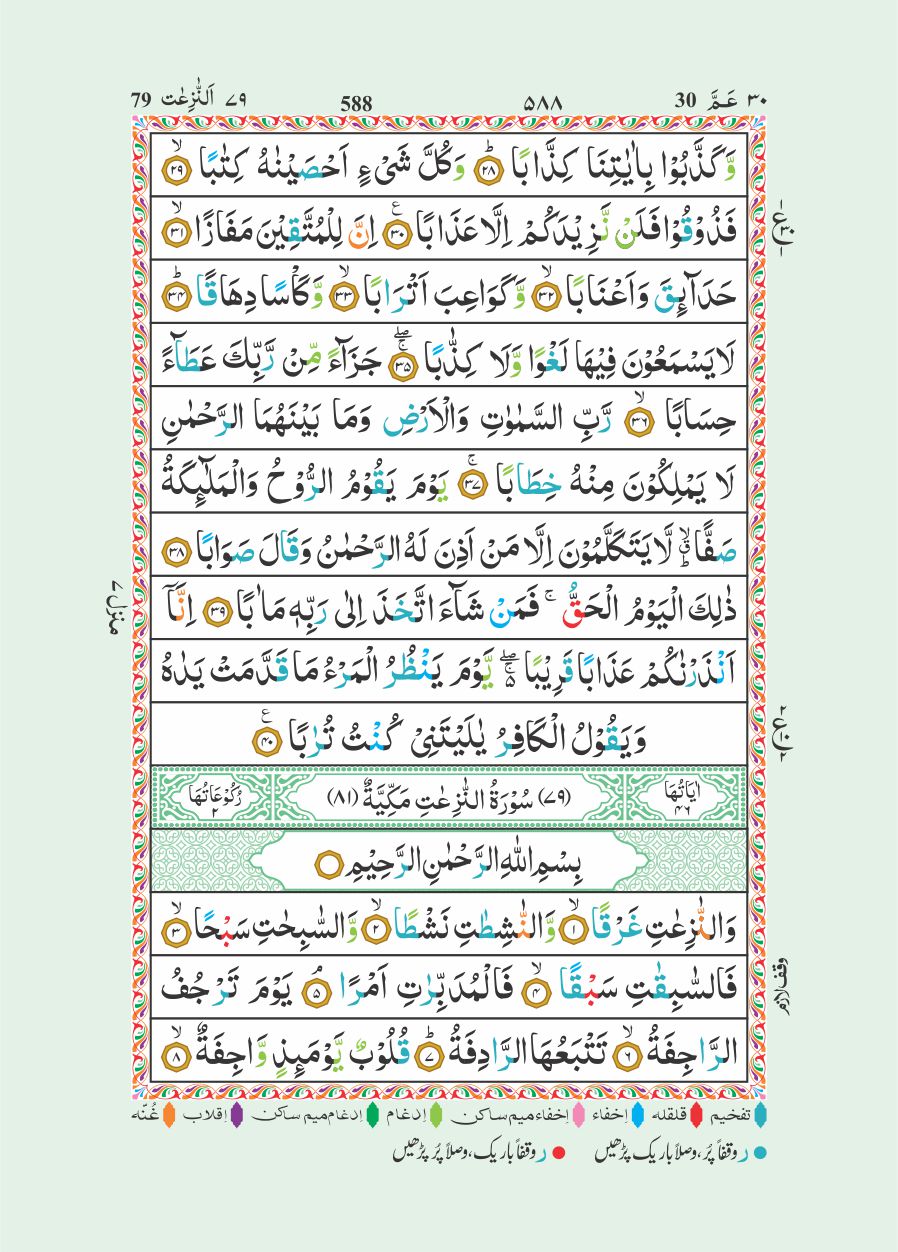 ٣٠ عَمَّ 30 ٥٨٨ 588 ٧٩ اَلنّٰزِعٰت 79
وَّكَذَّبُوْا بِاٰيٰتِنَا كِذَّابًا ؕ‏ ﴿۲۸﴾ وَكُلَّ شَىْءٍ اَحْصَيْنٰهُ كِتٰبًا ۙ‏ ﴿۲۹﴾
فَذُوْقُوْا فَلَنْ نَّزِيْدَكُمْ اِلَّا عَذَابًا ﴿۳۰﴾ ع اِنَّ لِلْمُتَّقِيْنَ مَفَازًا ۙ‏ ﴿۳۱﴾
حَدَآئِقَ وَاَعْنَابًا ۙ‏ ﴿۳۲﴾ وَّكَوَاعِبَ اَتْرَابًا ۙ‏ ﴿۳۳﴾ وَّكَاْسًا دِهَاقًا ؕ‏ ﴿۳۴﴾
لَا يَسْمَعُوْنَ فِيْهَا لَغْوًا وَّلَا كِذّٰبًا ۚ‏ۖ ﴿۳۵﴾ جَزَآءً مِّنْ رَّبِّكَ عَطَآءً
حِسَابًا ۙ‏ ﴿۳۶﴾ رَّبِّ السَّمٰوٰتِ وَالْاَرْضِ وَمَا بَيْنَهُمَا الرَّحْمٰنِ
لَا يَمْلِكُوْنَ مِنْهُ خِطَابًا ۚ‏ ﴿۳۷﴾ يَوْمَ يَقُوْمُ الرُّوْحُ وَالْمَلٰٓئِكَةُ
صَفًّا ؕۙ لَّا يَتَكَلَّمُوْنَ اِلَّا مَنْ اَذِنَ لَهُ الرَّحْمٰنُ وَقَالَ صَوَابًا ﴿۳۸﴾
ذٰلِكَ الْيَوْمُ الْحَقُّ ۚ فَمَنْ شَآءَ اتَّخَذَ اِلٰى رَبِّهٖ مَاٰبًا ﴿۳۹﴾ اِنَّاۤ
اَنْذَرْنٰكُمْ عَذَابًا قَرِيْبًا ۖۚ۬ يَّوْمَ يَنْظُرُ الْمَرْءُ مَا قَدَّمَتْ يَدٰهُ
وَيَقُوْلُ الْكَافِرُ يٰلَيْتَنِىْ كُنْتُ تُرٰبًا ﴿۴۰﴾ ع
اٰيَاتُهَا ٤٦ (٧٩) سُوْرَةُ النّٰزِعٰتِ مَكِّيَّةٌ (٨١) رُكُوْعَاتُهَا ٢
بِسْمِ اللّٰهِ الرَّحْمٰنِ الرَّحِيْمِ
وَالنّٰزِعٰتِ غَرْقًا ۙ‏ ﴿۱﴾ وَّالنّٰشِطٰتِ نَشْطًا ۙ‏ ﴿۲﴾ وَّالسّٰبِحٰتِ سَبْحًا ۙ‏ ﴿۳﴾
فَالسّٰبِقٰتِ سَبْقًا ۙ‏ ﴿۴﴾ فَالْمُدَبِّرٰتِ اَمْرًا ۘ‏ ﴿۵﴾ يَوْمَ تَرْجُفُ
الرَّاجِفَةُ ۙ‏ ﴿۶﴾ تَتْبَعُهَا الرَّادِفَةُ ؕ‏ ﴿۷﴾ قُلُوْبٌ يَّوْمَئِذٍ وَّاجِفَةٌ ۙ‏ ﴿۸﴾
منزل ٧
وقف لازم
تفخیم قلقله اِخفاء اِخفاء میم ساکن اِدغام اِدغام میم ساکن اِقلاب غُنّه
ر وقفاً پُر، وصلاً باریک پڑھیں ر وقفاً باریک، وصلاً پُر پڑھیں